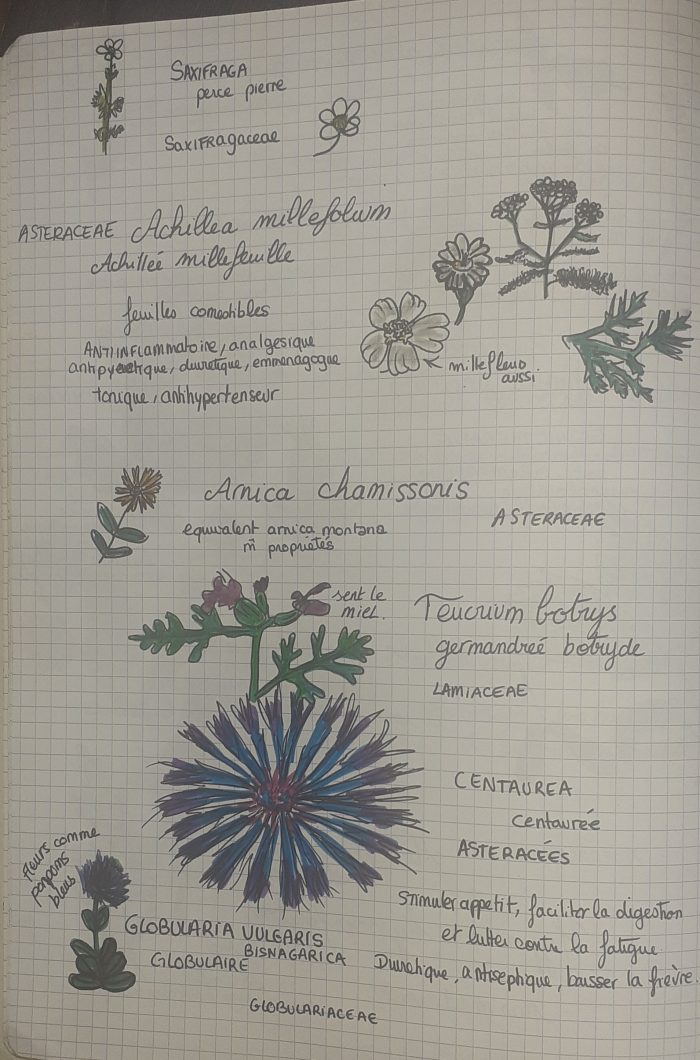 SAXIFRAGA
perce pierre
Saxifragaceae
ASTERACEAE Achillea millefolium
Achilleé millefeuille
feuilles comestibles
ANTIINFLAMMATOIRE, analgesique
antipyretique, diuretique, emmenagogue
tonique, antihypertenseur
millefleurs
aussi.
Arnica chamissonis
ASTERACEAE
equivalent arnica montana
m̄ propriétés
sent le
miel.
Teucrium botrys
germandreé botryde
LAMIACEAE
CENTAUREA
centaurée
ASTERACÉES
Stimuler appetit, faciliter la digestion
et lutter contre la fatigue
Diuretique, antiseptique, baisser la fièvre.
fleurs comme
pompons
bleus
GLOBULARIA VULGARIS
BISNAGARICA
GLOBULAIRE
GLOBULARIACEAE